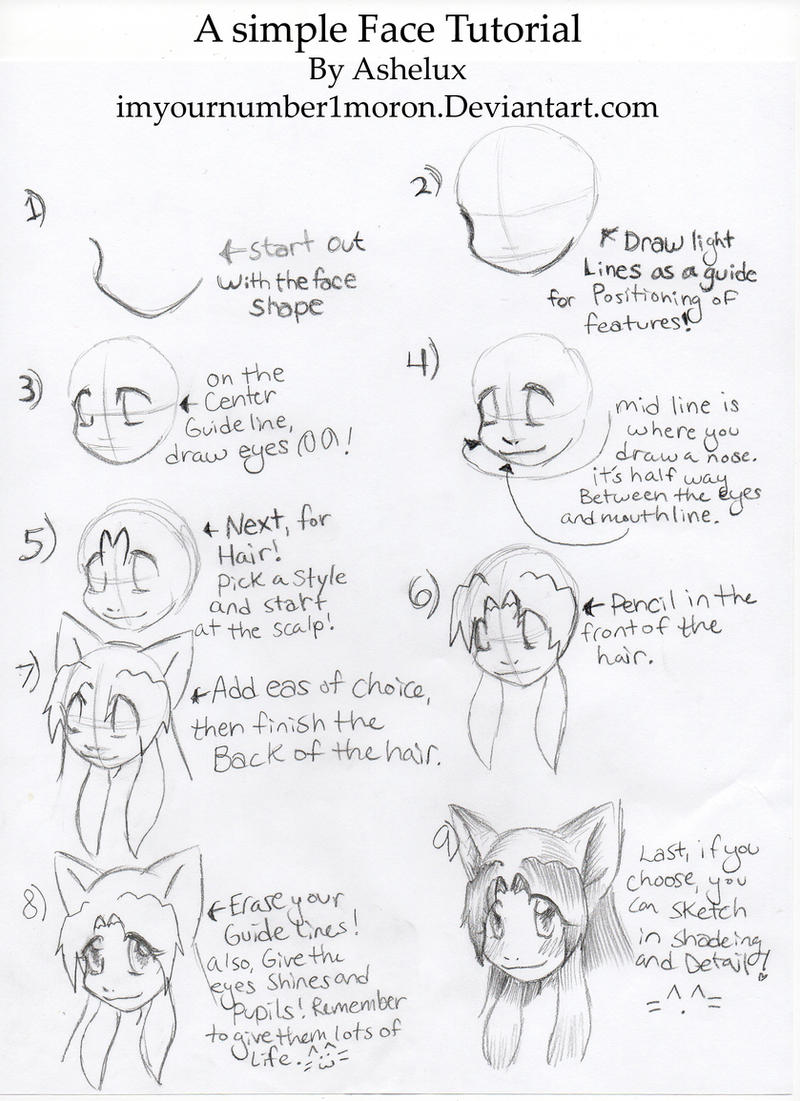 A simple Face Tutorial
By Ashelux
imyournumber1moron.Deviantart.com
1)
start out
with the face
shape
2)
Draw light
Lines as a guide
for Positioning of
features!
3)
on the
Center
Guide line,
draw eyes (00)!
4)
mid line is
where you
draw a nose.
it's half way
Between the eyes
and mouth line.
5)
Next, for
Hair!
Pick a style
and start
at the scalp!
6)
Pencil in the
front of the
hair.
7)
Add eas of choice,
then finish the
Back of the hair.
8)
Erase your
Guide lines!
also, Give the
eyes Shines and
pupils! Remember
to give them lots of
Life.
9)
Last, if you
choose, you
can sketch
in shadeing
and Detail!
=^.^=